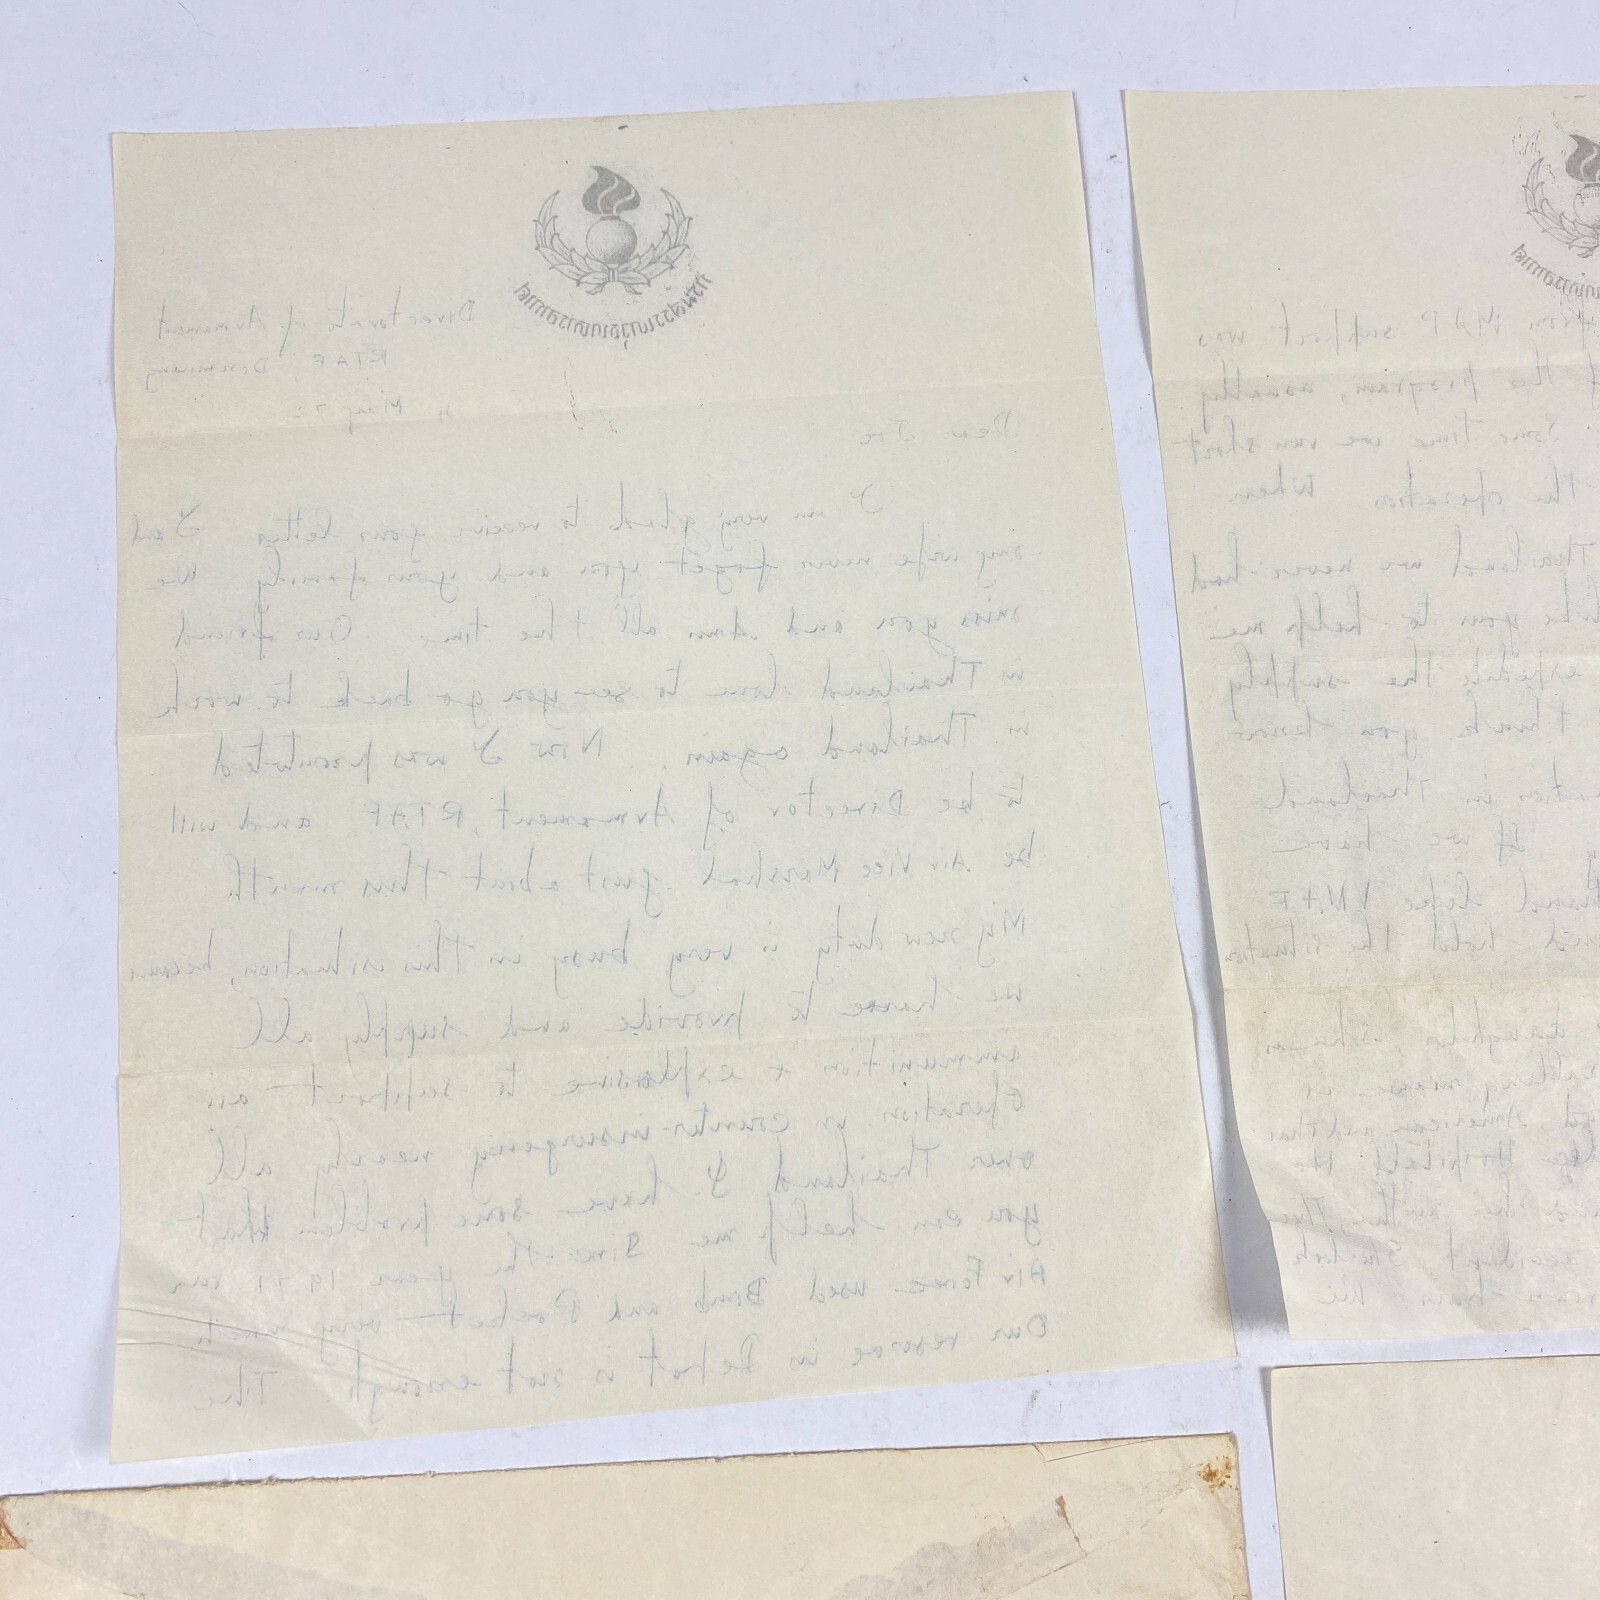 กรมสรรพาวุธทหารอากาศ
Directorate of Armament
RTAF, Donmuang
4 May 72
Dear Joe
I am very glad to receive your letter I and
my wife never forget you and your family We
miss you and Ann all the time Our friend
in Thailand love to see you go back to work
in Thailand again. Now I was promoted
to be Director of Armament, RTAF and will
be Air Vice Marshal just about this month.
My new duty is very busy in this situation, because
we have to provide and supply all
ammunition + explosive to support air
operation in counter-insurgency nearly all
over Thailand I have some problem that
you can help me Since the year 1971 our
Air Force used Bomb and Rocket very much
Our reserve in Depot is not enough The
from MAP support was
the program, usually
Some time we run short
the operation. When
Thailand we never had
like you to help me
expidite the supply
think you know
situation in Thailand
If we have
hand like VNAF
hold the situation
daughter, is
calling
American and Thai
Hospital He
her mother, The
accident
hair He